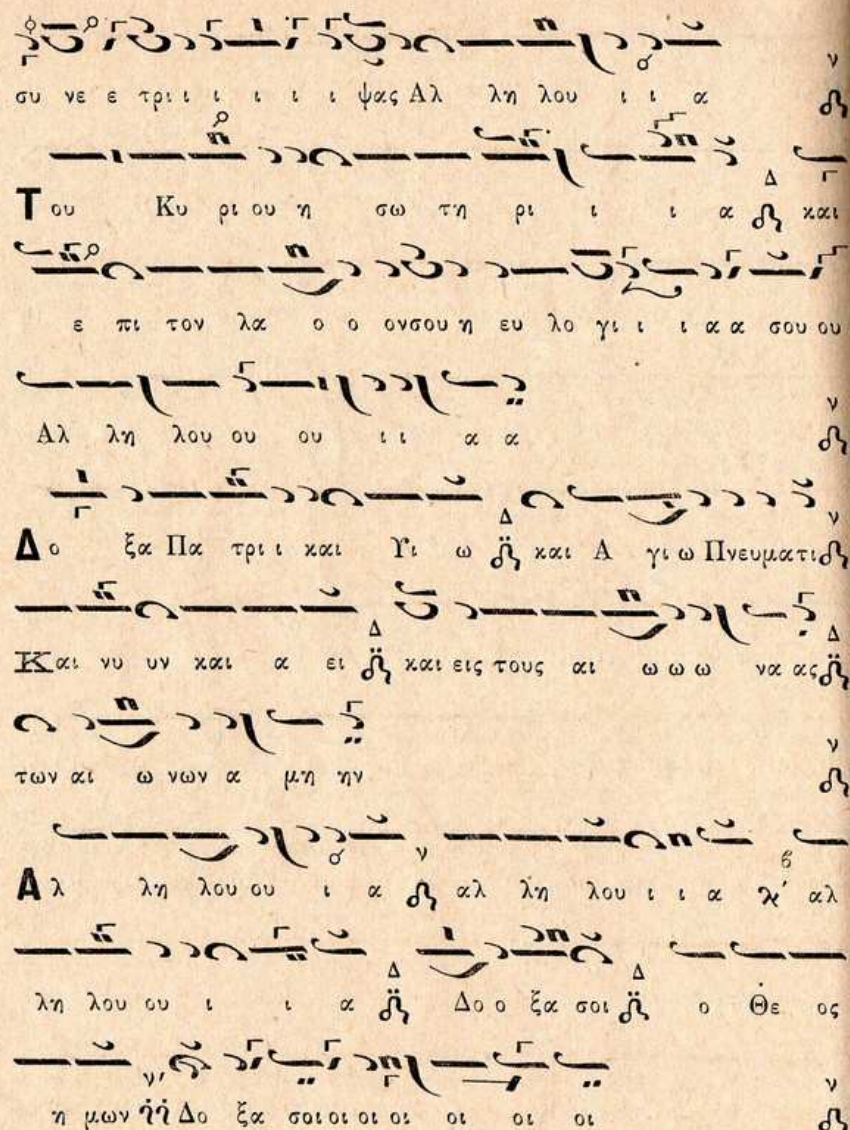 συ νε ε τρι ι ι ι ι ι ψας Αλ λη λου ι ι α
Του Κυ ρι ου η σω τη ρι ι ι α και
ε πι τον λα ο ο ονσου η ευ λο γι ι ι α α σου ου
Αλ λη λου ου ου ι ι α α
Δο ξα Πα τρι ι και Υι ω και Α γι ω Πνευματι
Και νυ υν και α ει και εις τους αι ω ω ω να ας
των αι ω νων α μη ην
Αλ λη λου ου ι α αλ λη λου ι ι α αλ
λη λου ου ι ι α Δο ο ξα σοι ο Θε ος
η μων Δο ξα σοι οι οι οι οι οι οι